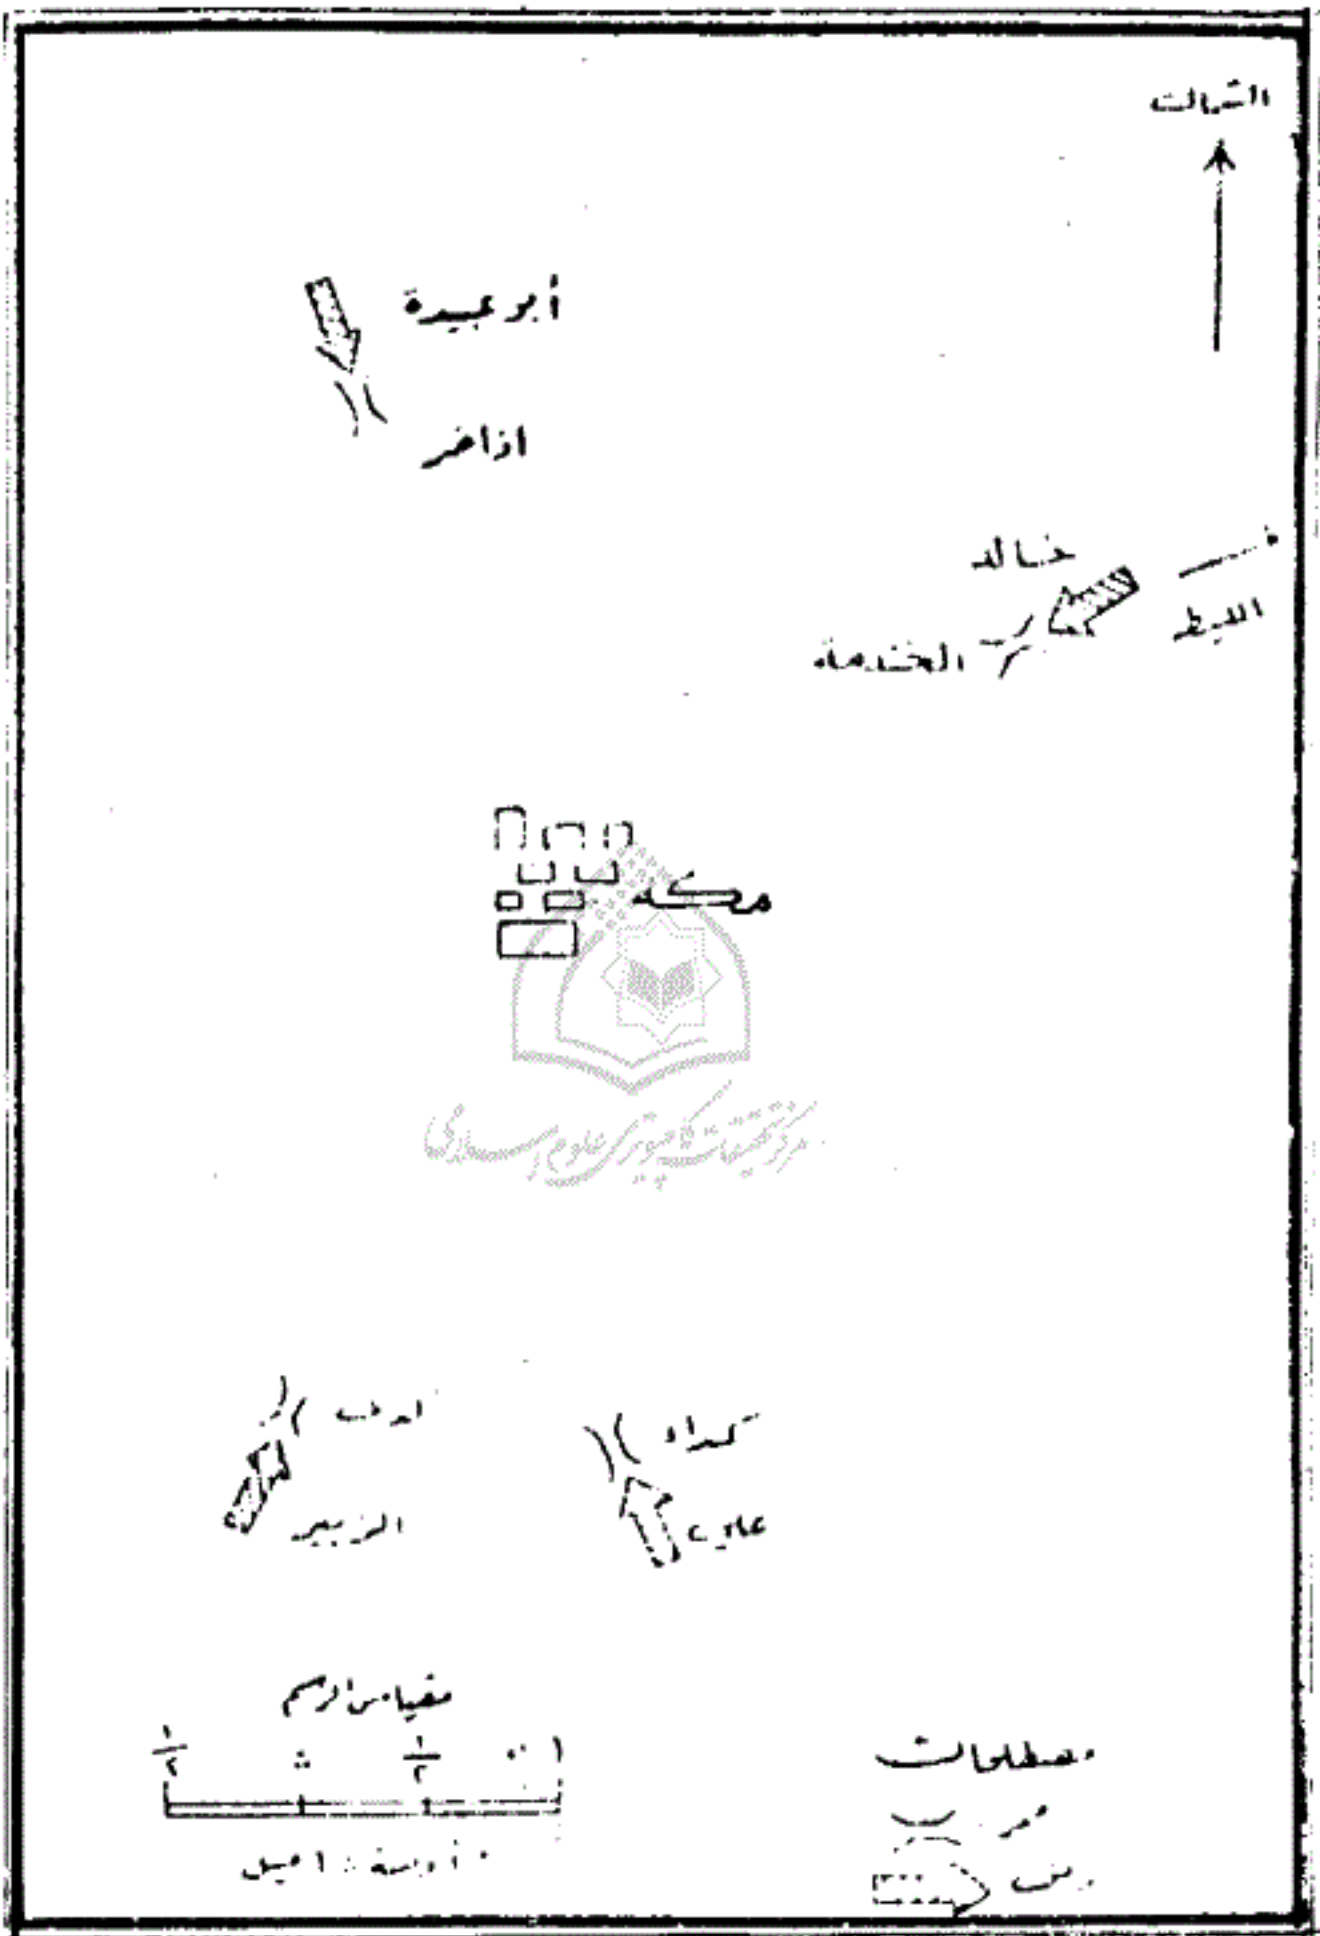 الشمال
أبو عبيدة
اذاخر
خالد
الليط
الخندمة
مكه
مركز تحقیقات کامپیوتری علوم اسلامی
كداء
الزبير
مقياس الرسم
١/٢ ٠ ١/٢ ١
مصطلحات
ممر